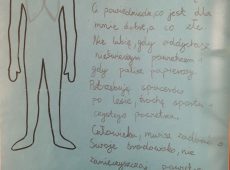 Ci powiedzieć, co jest dla
mnie dobre, a co złe.
Nie lubię, gdy oddychasz
nieświeżym powietrzem i
gdy palisz papierosy.
Potrzebuję spacerów
po lesie, trochę sportu i
czystego powietrza.
Człowieku, musisz zadbać o
swoje środowisko, nie
zanieczyszczać powietrza